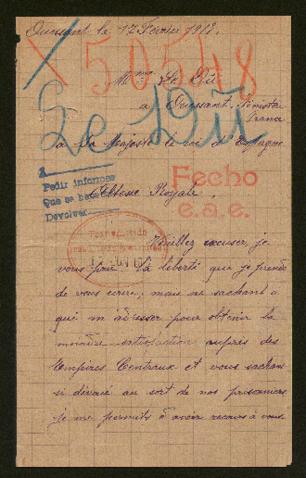 Ouessant le 17 Février 1918.
X 50548
Mme Le Dû
à Ouessant, Finistère
France
Le Dû
à Sa Majesté le roi d'Espagne
Pedir informe
Que se haga
Devolver
Fecho
e.a.e.
Altesse Royale,
Veuillez excuser, je
vous prie, la liberté que je prends
de vous écrire, mais ne sachant à
qui m'adresser pour obtenir la
moindre satisfaction auprès des
Empires Centraux et vous sachant
si dévoué au sort de nos prisonniers
je me permets d'avoir recours à vous